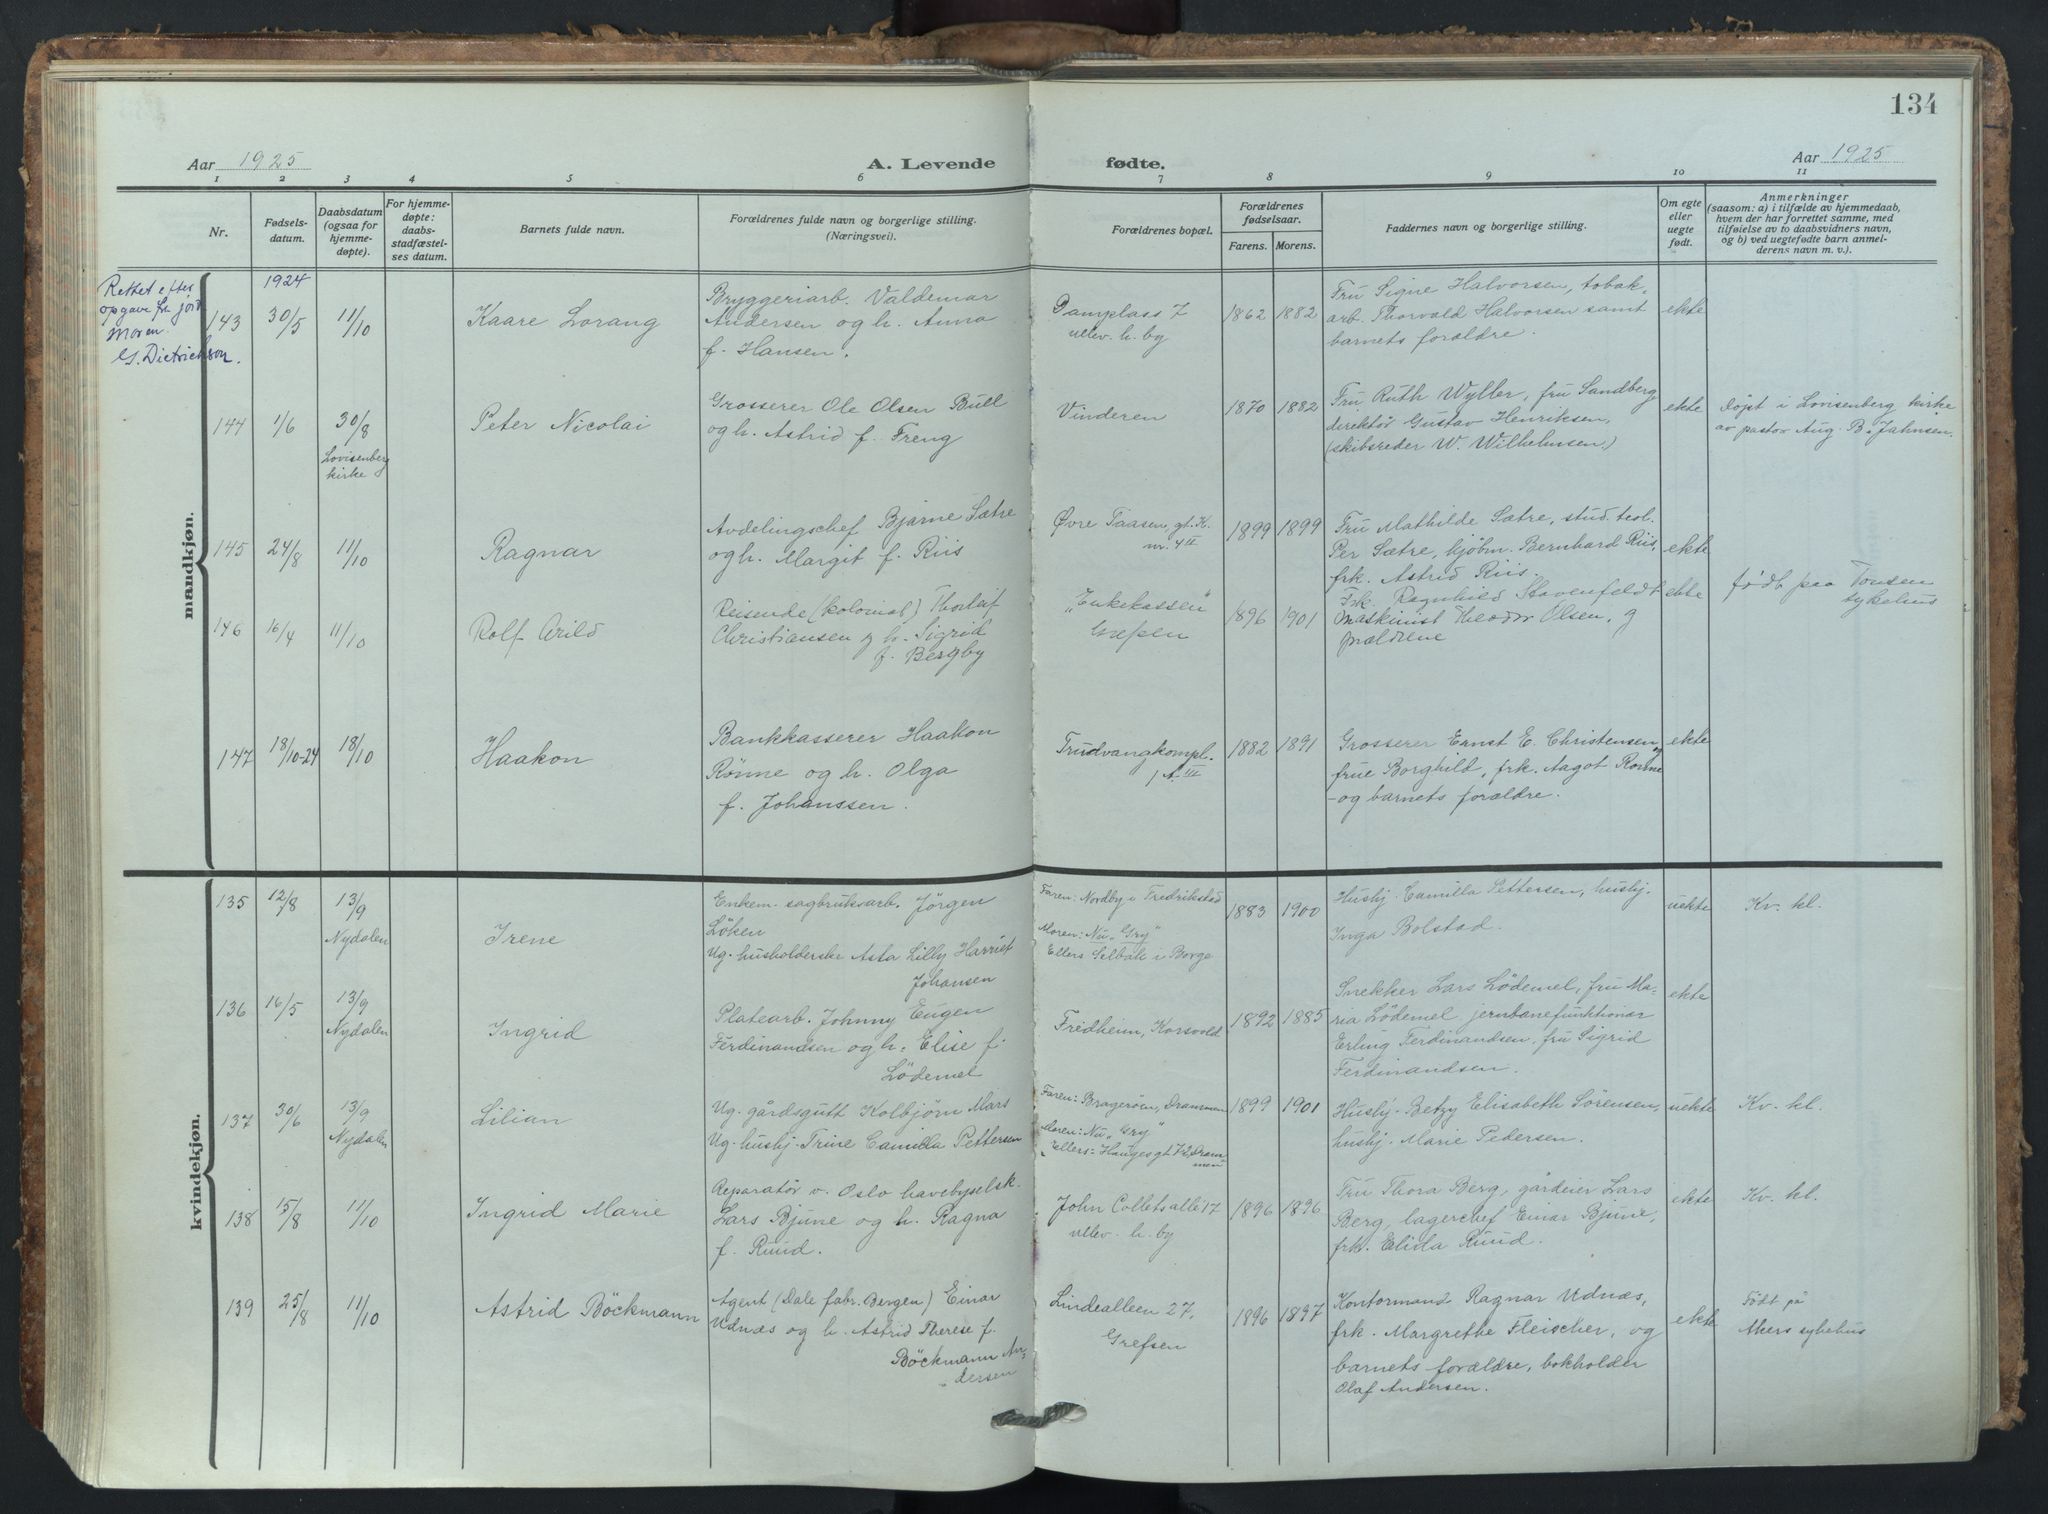 134
Aar 1925
A. Levende fødte.
Aar 1925
1 2 3 4 5 6 7 8 9 10 11
Nr.
Fødsels-
datum.
Daabsdatum
(ogsaa for
hjemme-
døpte).
For hjemme-
døpte:
daabs-
stadfæstel-
ses datum.
Barnets fulde navn.
Forældrenes fulde navn og borgerlige stilling.
(Næringsvei).
Forældrenes bopæl.
Forældrenes
fødselsaar.
Farens. Morens.
Faddernes navn og borgerlige stilling.
Om egte
eller
uegte
født.
Anmerkninger
(saasom: a) i tilfælde av hjemmedaab,
hvem der har forrettet samme, med
tilføielse av to daabsvidners navn,
og b) ved uegtefødte barn anmel-
derens navn m. v.).
mandkjøn.
Rettet efter
opgave fra jord
moren.
G. Dietrichson.
143
1924
30/5
11/10
Kaare Lorang
Bryggeriarb. Valdemar
Andersen og h. Anna
f. Hansen.
Damplass 7
ullev. h. by
1862 1882
Fru Signe Halvorsen, tobak.
arb. Thorvald Halvorsen samt
barnets forældre.
ekte
144
1/6
30/8
Lovisenberg
kirke
Peter Nicolai
Grosserer Ole Olsen Bull
og h. Astrid f. Freng
Vinderen
1870 1882
Fru Ruth Wyller, fru Sandberg
direktør Gustav Henriksen,
(skibsreder W. Wilhelmsen.)
ekte
Döpt i Lovisenberg kirke
av pastor Aug. B. Jahnsen.
145
24/8
11/10
Ragnar
Avdelingschef Bjarne Sætre
og h. Margit f. Riis
Øvre Taasen, gt. K.
nr. 4 II
1899 1899
Fru Mathilde Sætre, stud. teol.
Per Sætre, kjøbm. Bernhard Riis,
frk. Astrid Riis.
ekte
146
16/4
11/10
Rolf Arild
Reisende (kolonial) Thorleif
Christiansen og h. Sigrid
f. Bergby
"Enkekassen"
Grefsen
1896 1901
Frk. Ragnhild Skavenfeldt
Maskinist Theodor Olsen, og
forældrene
ekte
født paa Tonsen
sykehus
147
18/10-24
18/10
Haakon
Bankkasserer Haakon
Rönne og h. Olga
f. Johanssen.
Trudvangkompl.
1 A. III
1882 1891
Grosserer Ernst E. Christensen og
frue Borghild, frk. Aagot Ronne
- og barnets forældre.
ekte
kvindekjøn.
135
12/8
13/9
Nydalen
Irene
Enkem. sagbruksarb. Jörgen
Löken
Ug. husholderske Asta Lilly Harriet
Johansen
Faren: Nordby i Fredrikstad
Moren: Nu "Gry"
Ellers Selbak i Borge
1883 1900
Husbj. Camilla Pettersen, husbj.
Inga Bolstad.
uekte
Kv. kl.
136
16/5
13/9
Nydalen
Ingrid
Platearb. Johnny Eugen
Ferdinandsen og h. Elise f.
Lödemel
Fredheim, Korsvold
1892 1885
Snekker Lars Lödemel, fru Ma-
ria Lödemel jernbanefunktionær
Erling Ferdinandsen, fru Sigrid
Ferdinandsen.
ekte
137
30/6
13/9
Nydalen
Lilian
Ug. gårdsgutt Kolbjörn Mars
Ug. husbj. Trine Camilla Pettersen
Faren: Bragerøen, Drammen
Moren: Nu "Gry"
Ellers: Hauges gt. 72, Dram-
men
1899 1901
Husbj. Betzy Elisabeth Sörensen,
husbj. Marie Pedersen.
uekte
Kv. kl.
138
15/8
11/10
Ingrid Marie
Reparatör v. Oslo havebyselsk.
Lars Bjune og h. Ragna
f. Ruud.
John Collets allé 17
ullev. h. by
1896 1896
Fru Thora Berg, gårdeier Lars
Berg, lagerchef Einar Bjune,
frk. Elida Ruud.
ekte
Kv. kl.
139
25/8
11/10
Astrid Böckmann
Agent (Dale fabr. Bergen) Einar
Udnæs og h. Astrid Therese f.
Böckmann An-
dersen
Lindealleen 27,
Grefsen
1896 1897
Kontormand Ragnar Udnæs,
frk. Margrethe Fleischer, og
barnets forældre, bokholder
Olaf Andersen.
ekte
Födt på
Akers sykehus